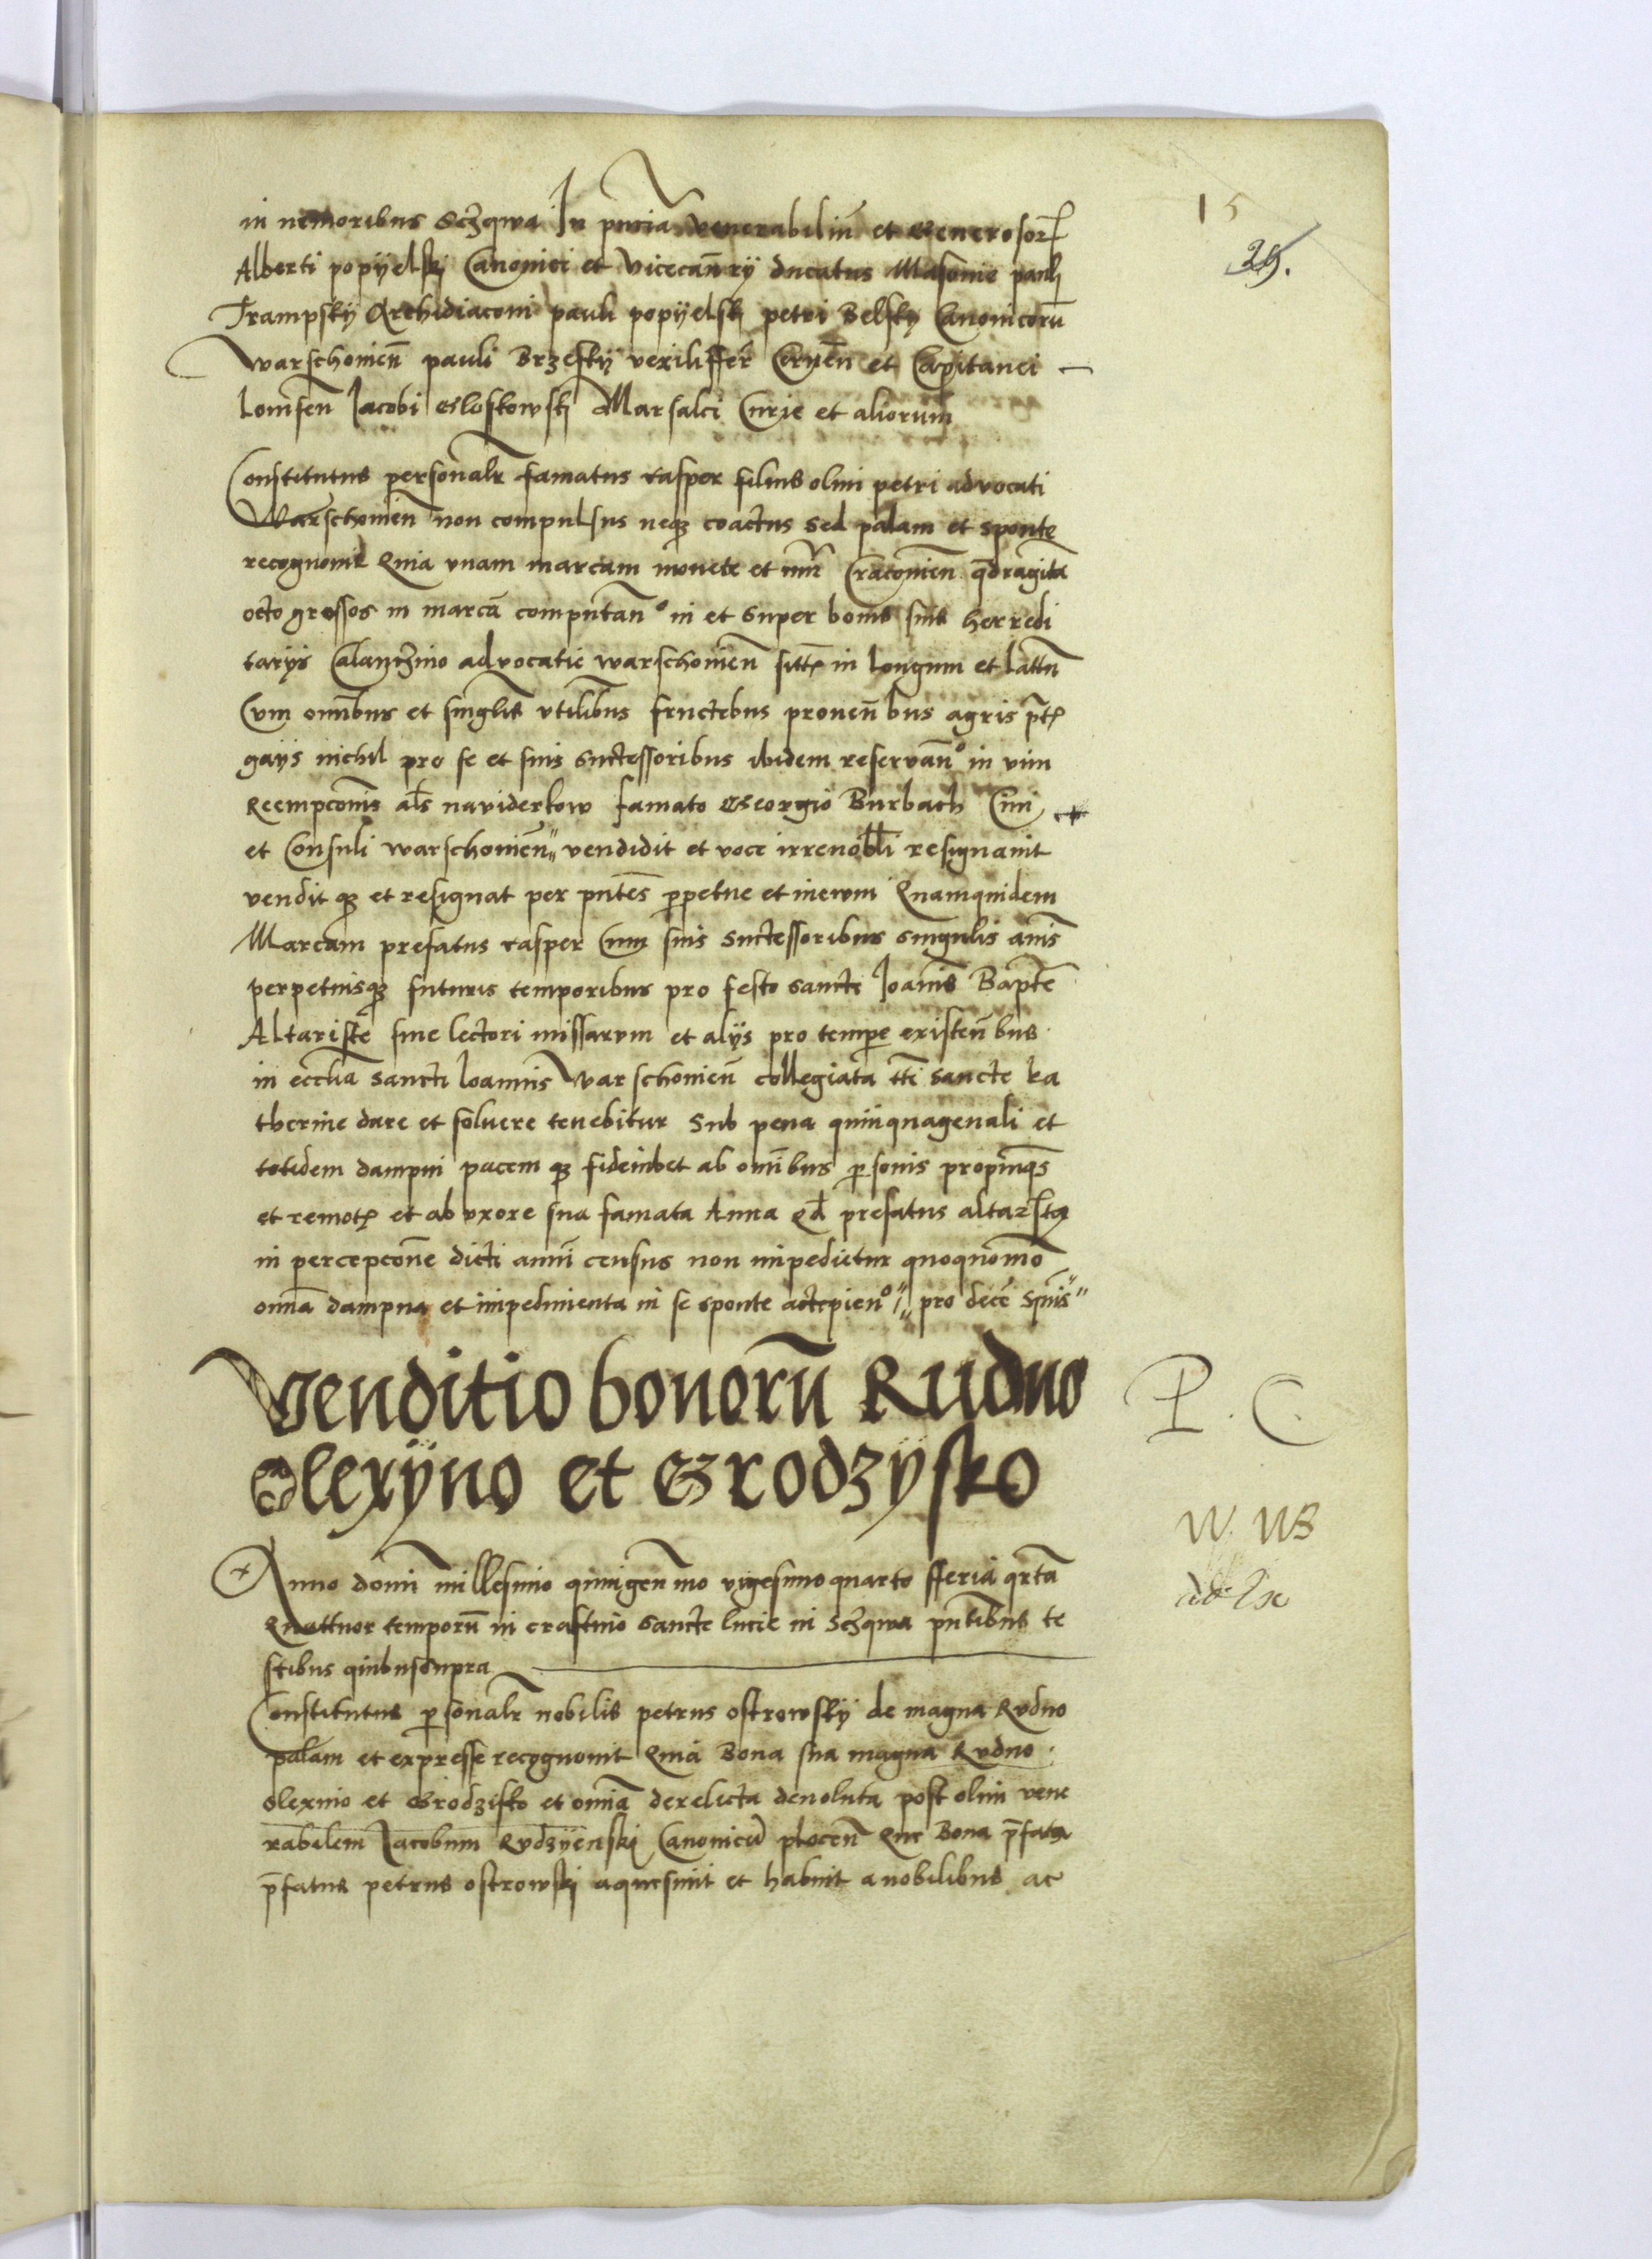 15
29.
in nemoribus Sczqwa In pn̄cia venerabiliu͂ et Generosor͂
Alberti popÿelskj Canonici et vicecan̄rÿ ducatus Masouie pauli
Trampskÿ Archidiaconi pauli popÿelskj petri Belsky Canonicoru͂
warschouien̄ pauli Brzeskÿ vexiliffer̄ Cernen̄ et Capitanei
lomsen̄ Jacobi Gloskowskj Marsalci Curie et aliorum
Constitutus personalr̄ famatus casper filius olim petri advocati
Warschouien̄ non compulsus neqꝫ coactus sed palam et sponte
recognouit Quia vnam marcam monete et nūi Cracouien̄ q̄dragita
octo grossos in marcā computan͂° in et super bonis suis herredi
tarÿs Calanczino advocatie warschouien̄ sitt͂ in longum et lattu͂
Cum omnibus et singlis vtilibus fructibus prouen̄bus agris pr͂t
gaÿs nichil pro se et suis successoribus ibidem reservan͂° in vim
Reempconis als naviderkow famato Georgio Burbach Ciui
et Consuli warschouien̄ vendidit et voce irreuobl̄i resignauit
vendit qꝫ et resignat per pn̄tes p̱petue et ineuum Quamquidem
Marcam prefatus casper Cum suis successoribus singulis an̄is
perpetuisqꝫ futuris temporibus pro festo sancti Joan̄is Bapt̄e
Altariste siue lectori missarum et alÿs pro tempe existen̄bus
in eccl̄ia sancti Joannis warschouien̄ collegiata tt̄i sancte ka
therine dare et soluere tenebitur Sub pena quinquagenali et
totidem dampni pacem qꝫ fideiubet ab om̄ibus p̱sonis propinqs
et remot͂ et ab vxore sua famata Anna qd̄ prefatus altarista
in percepcōne dicti anni census non inpedietur quoquomō
omā dampna et impedimenta in se sponte accepien͂° pro dece͂
Venditio bonoru͂ Rudno
Olexÿno et Grodzÿsko
Anno domi͂ millesimo quingen̄mo vigesimo quarto fferia qr̄ta
Quattuor temporu͂ in crastino sancte lucie in Sczqwa pn̄tibus te
stibus quibus supra
Constitutus p̱sonalr̄ nobilis petrus ostrowskÿ de magna Rudno
palam et expresse recognouit Quia Bona sua magna Rudno
olexino et Grodzisko et omīa derelicta deuoluta post olim vene
rabilem Jacobum Rudzÿenski Canonicu͂ plocen̄ Que Bona p̄fata
p̄fatus petrus ostrowski aquesiuit et habuit a nobilibus ac
P. C.
W. WB